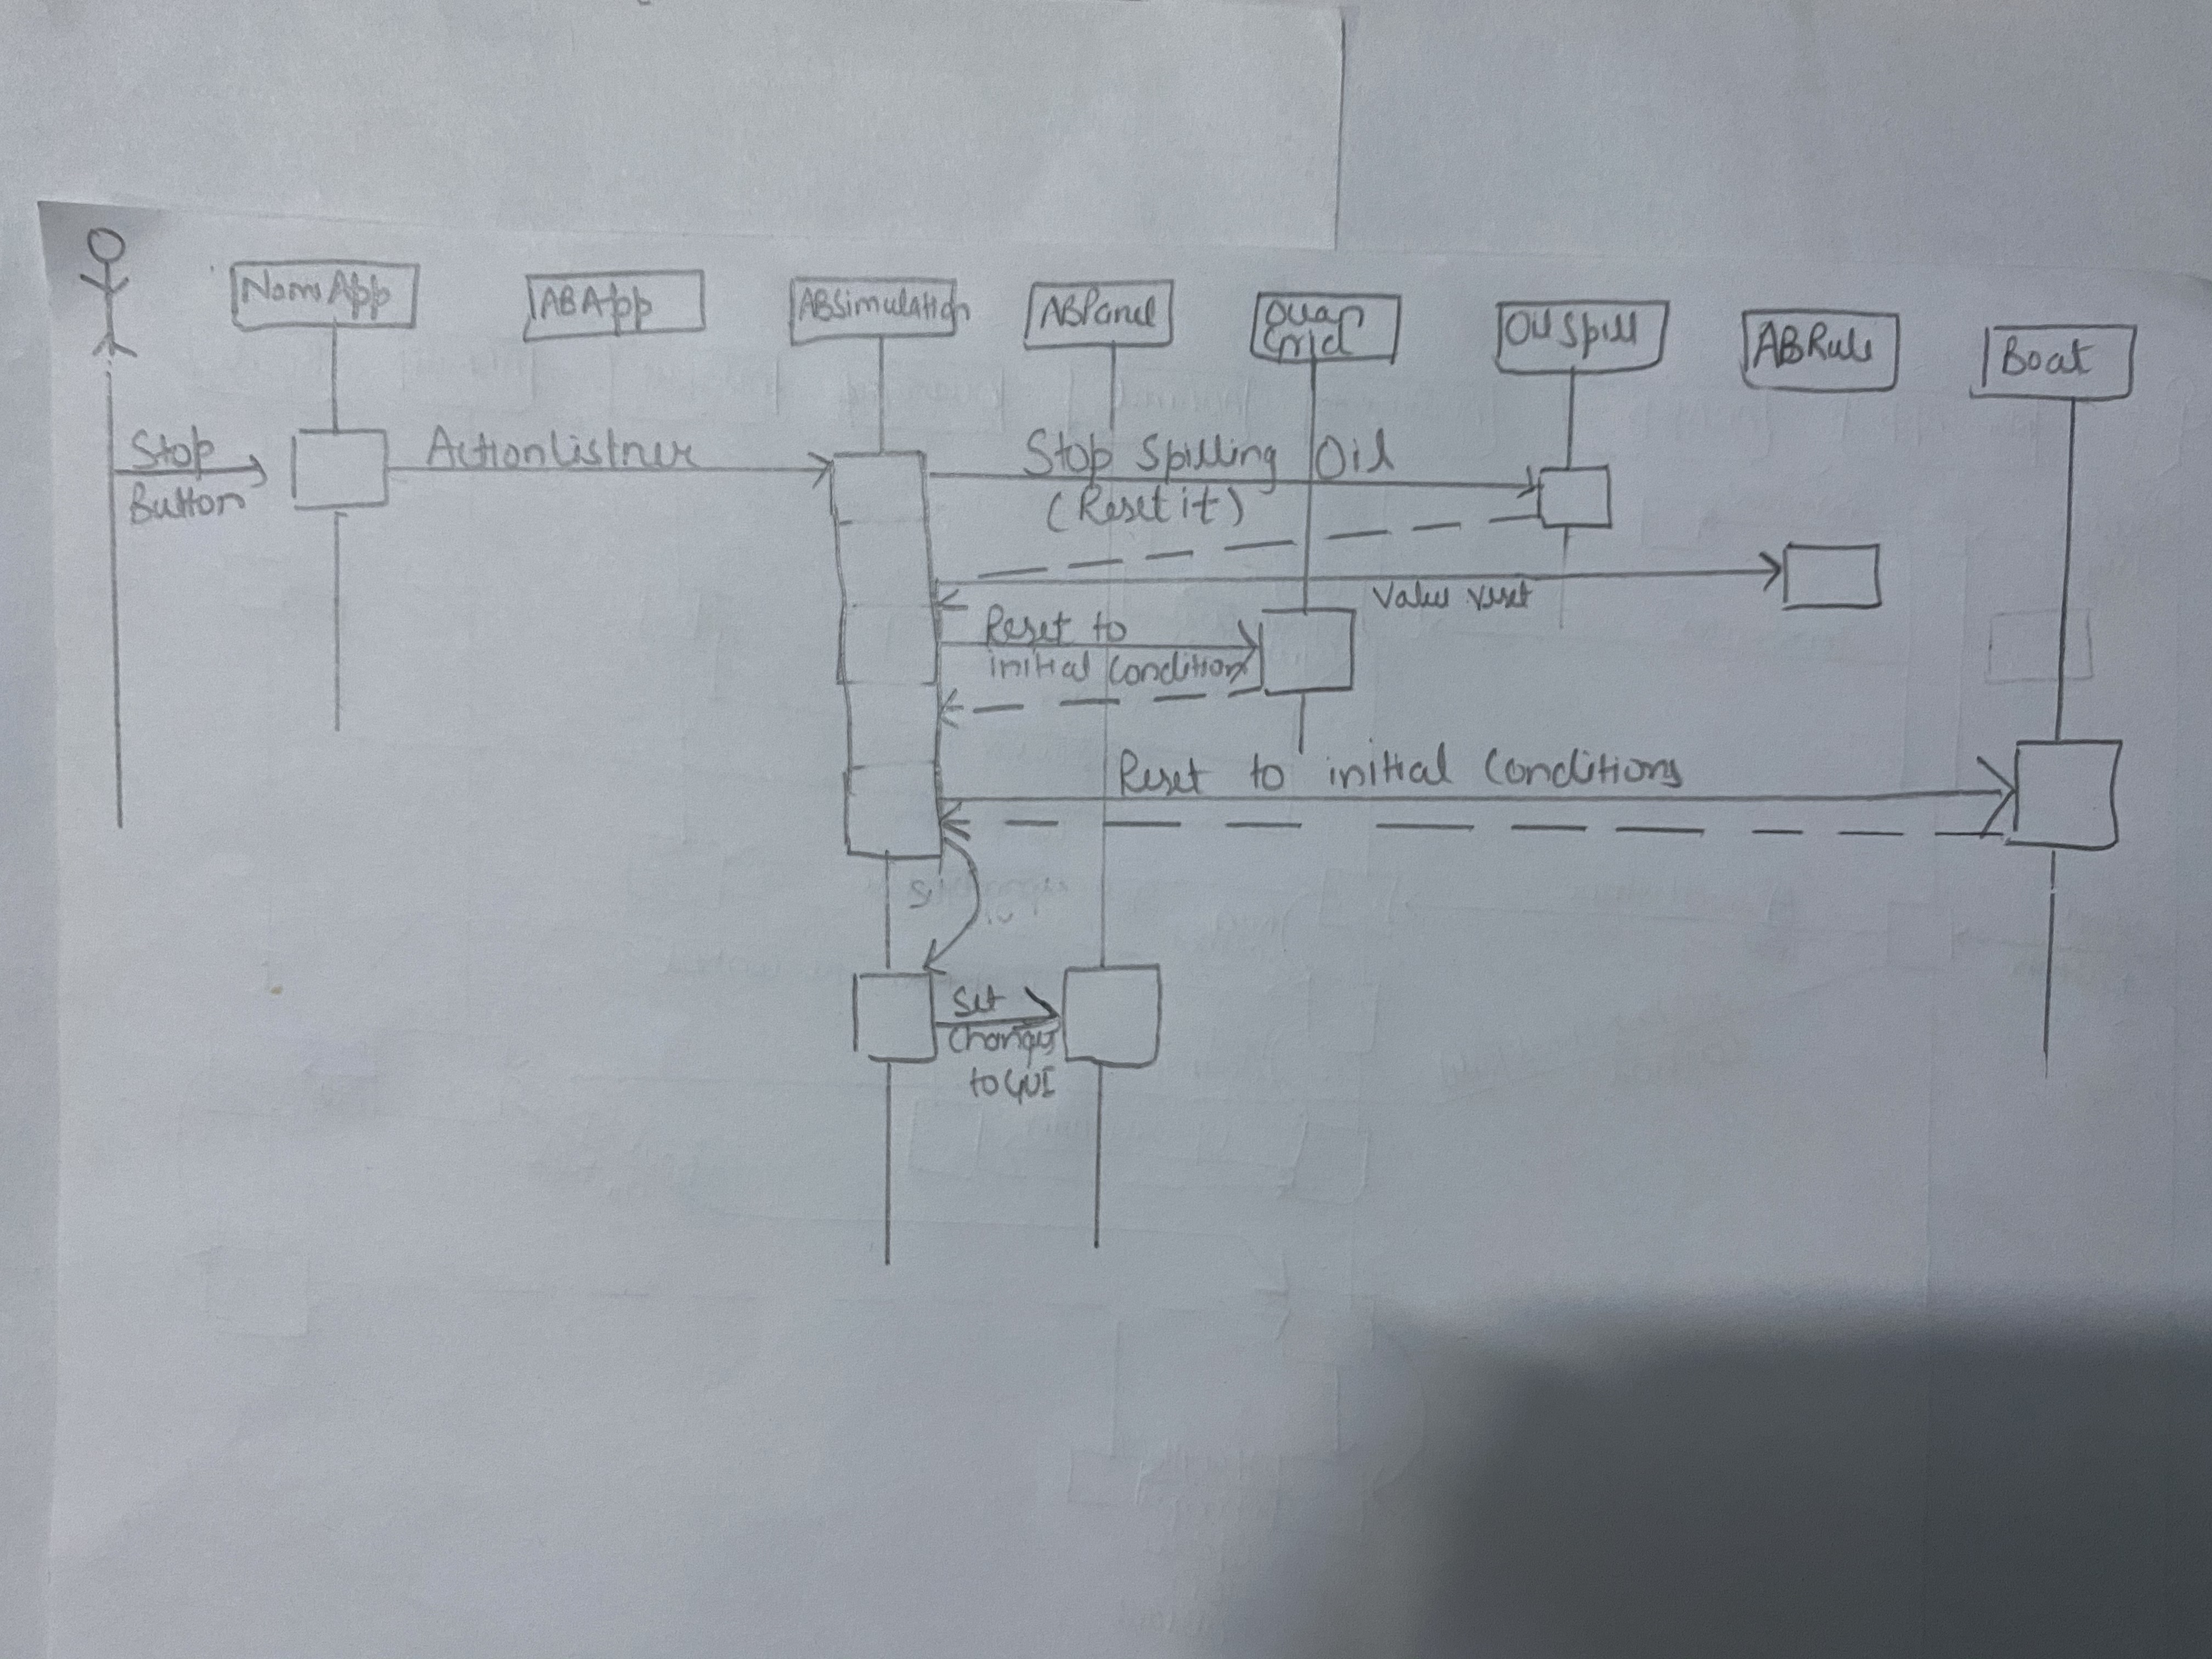 NomsApp
ABApp
ABSimulation
ABPanel
Grid
Oil Spill
ABRule
Boat
Stop
Button
ActionListner
Stop Spilling Oil
(Reset it)
Value reset
Reset to
initial Condition
Reset to initial Conditions
Set
Changes
to GUI